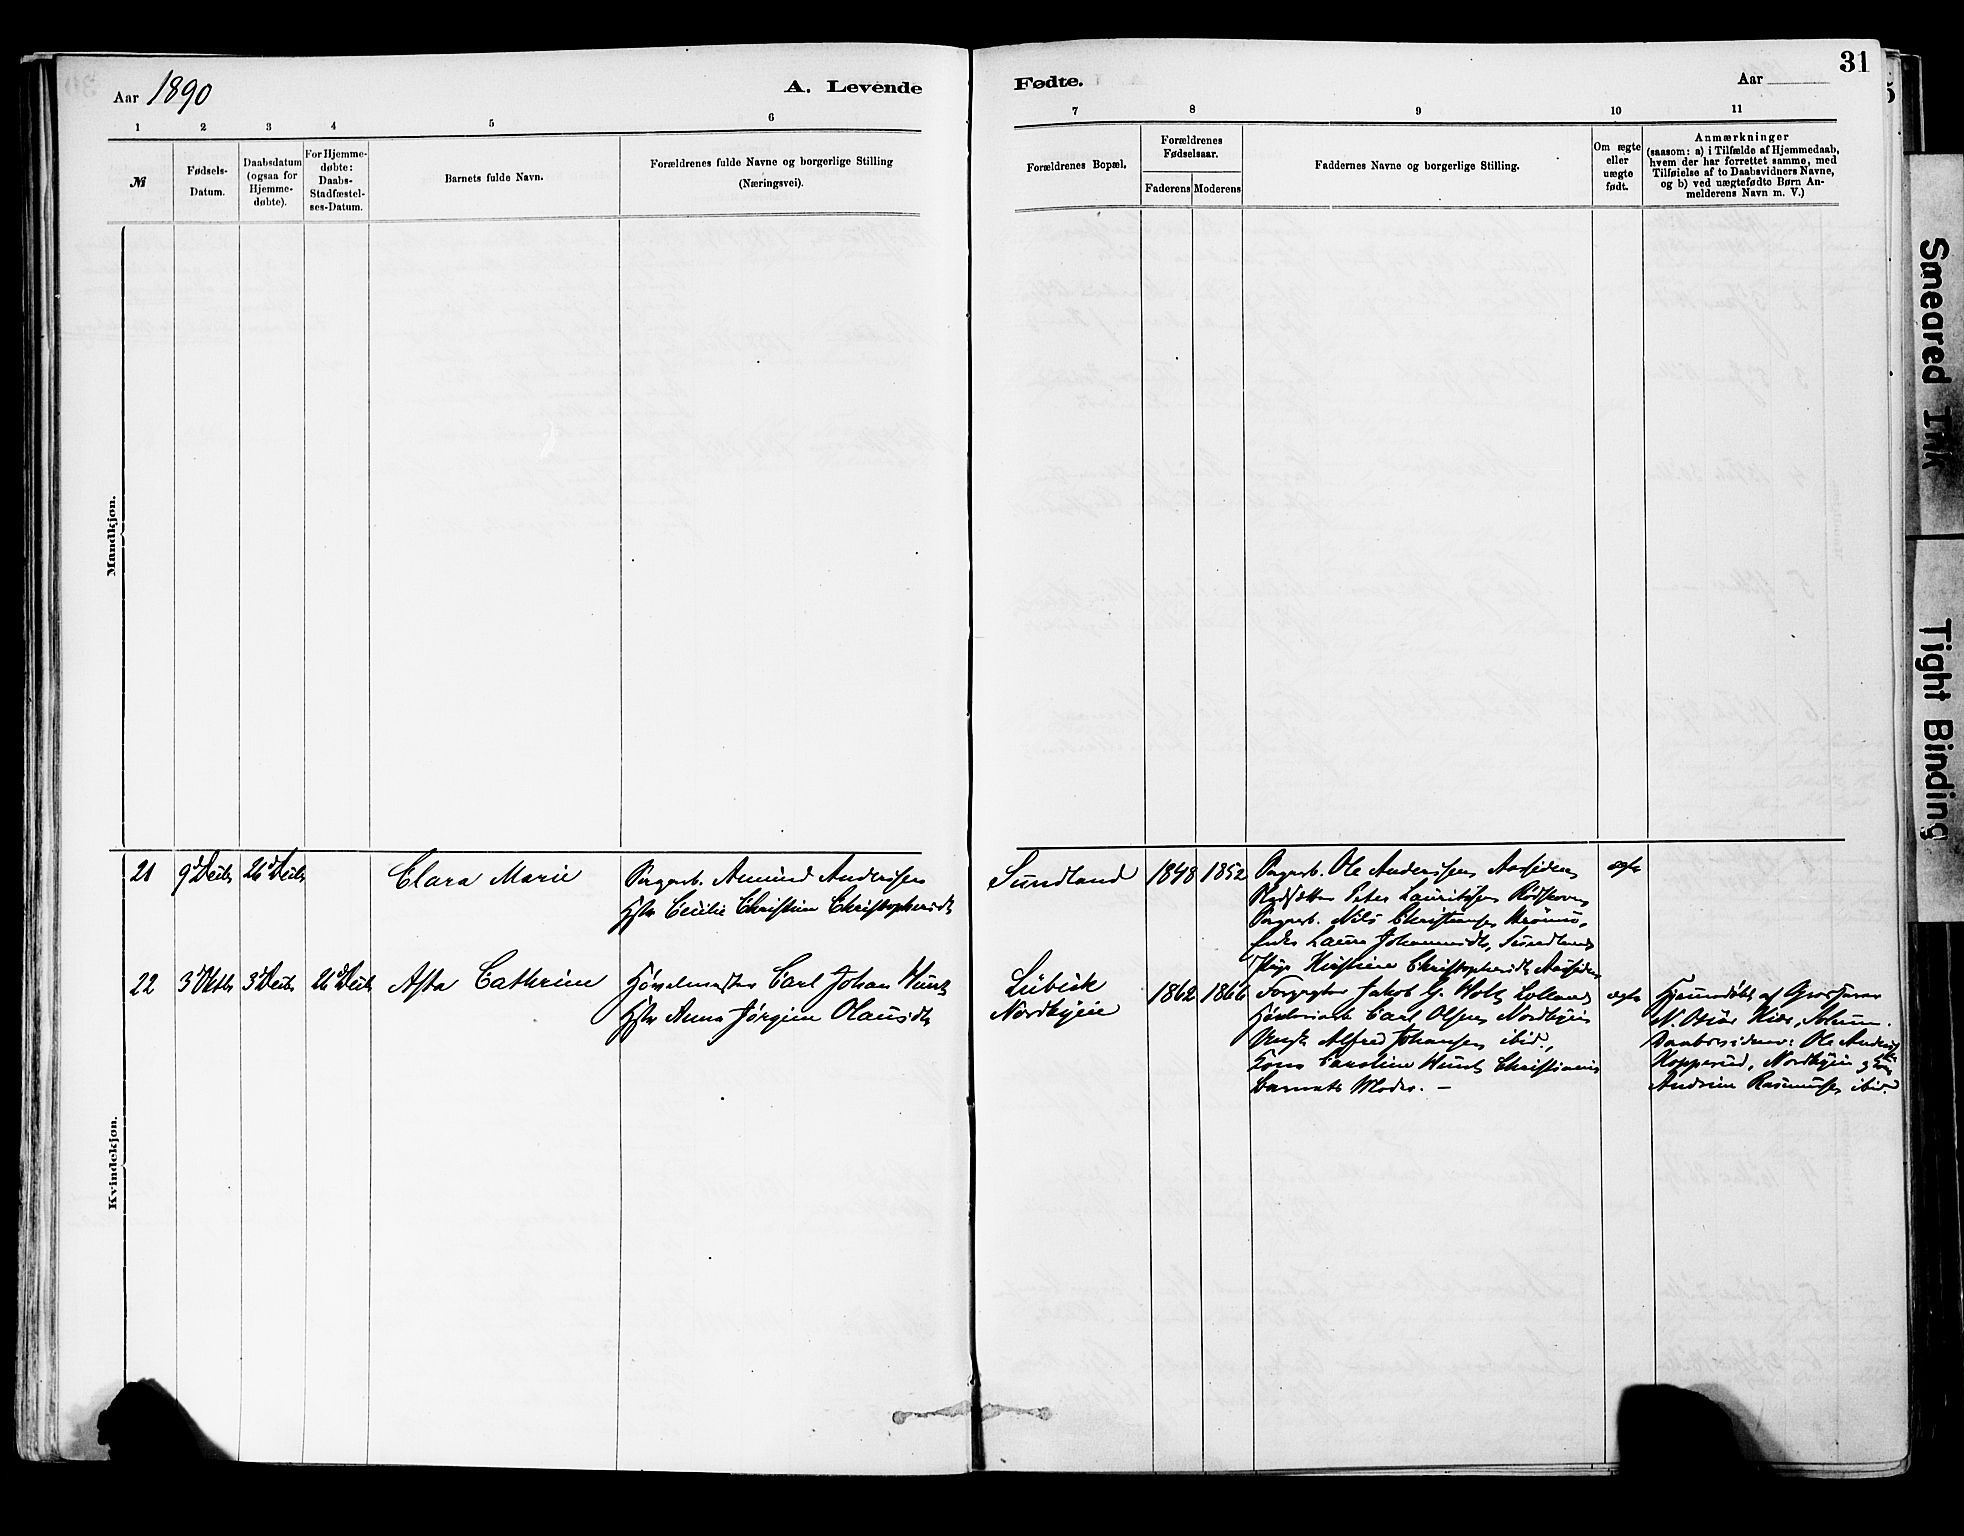 31
Aar 1890
A. Levende
Fødte.
Aar
1
2
3
4
5
6
7
8
9
10
11
№
Fødsels-
Datum.
Daabsdatum
(ogsaa for
Hjemme-
døbte).
For Hjemme-
døbte:
Daabs-
Stadfæstel-
ses-Datum.
Barnets fulde Navn.
Forældrenes fulde Navne og borgerlige Stilling
(Næringsvei).
Forældrenes Bopæl.
Forældrenes
Fødselsaar.
Faderens
Moderens
Faddernes Navne og borgerlige Stilling.
Om ægte
eller
uægte
født.
Anmærkninger
(saasom: a) i Tilfælde af Hjemmedaab,
hvem der har forrettet samme, med
Tilføielse af to Daabsvidners Navne,
og b) ved uægtefødte Børn An-
melderens Navn m. V.)
Mandkjøn.
Kvindekjøn.
21
9d Decbr
26d Decbr
Clara Marie
Amund Anderssen
Hstr Cecilie Christine Christophersdtr
Sundland
1848
1852
Ole Anderssen
Peter Lauritssen
Nils Christiansen
Enke Laura Johannesdtr, Sundland
Pige Kirstine Christophersdtr
ægte
22
3d Oktbr
3d Decbr
26d Decbr
Asta Cathrine
Høvelmester Carl Johan
Hstr Anna Jørgine Olausdtr
Lübeck
Nordbyeie
1862
1866
Jakob G. Holt
Carl Olsen, Nordbyeie
Ungk. Alfred Johansen ibid.,
Kone Caroline Christiania
Barnets Moder. —
ægte
Hjemmedøbt af Grosserer
N. Otiár Kiær, Solum.
Daabsvidner: Ole Anders.
Kopperud, Nordbyeie og
Andrine Rasmussen ibid.
Smeared Ink
Tight Binding